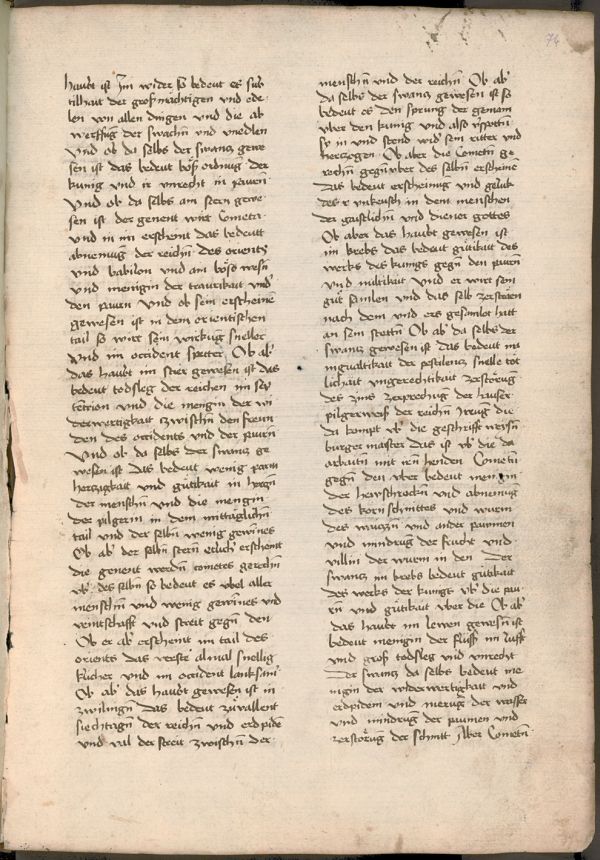 74
haubt ist Im wider so bedeut es sub
tilhait der großmächtigen und ede
len von allen dingen und die ab
werffug der swachn̄ und unedlen
Und ob da selbs der swantz gewe
sen ist das bedeut böß ordnug der
kunig und ir unrecht in paurn̄
Und ob da selbs am stern gewe
sen ist der genent wirt Cometa
und in im erscheint das bedeutt
abnemūg der reichn̄ des orients
und babilon und am böse wesn̄
und menigin der traurikait und
den paurn und ob sein erscheinē
gewesen ist in dem orientischen
tail so wirt sein wirkūg sneller
Und im occident spater Ob ab'
das haubt im stier gewesen ist das
bedeut todsleg der reichen im sep
tetrion und die mengin der wi
derwertigkait zwischn̄ den freun
den des occidents und der paurn̄
Und ob da selbs der swantz ge
wesen ist das bedeut wenig parm
hertzigkait und gütikait in hertzn̄
der menschn̄ und die mengin
der pilgerin in dem mittäglichn̄
tail und der selbn̄ wenig gewines
Ob ab' der selbn̄ stern etlich' erscheint
die genent werdn̄ cometes gerechn̄
vb' des selbn̄ so bedeut es ubel aller
menschn̄ und wenig gewines und
veintschafft und streit gegn̄ den
Ob er ab' erscheint im tail des
orients das verste almal snellig
kücher und im occident lanksam'
Ob ab' das haubt gewesen ist in
zwilingn̄ das bedeut zuvallent
siechtagn̄ der reichn̄ und erdpidē
und val der streit zwischn̄ der
menschn̄ und der reichn̄ Ob ab'
da selbs der swantz gewesen ist so
bedeut es den sprung der gemain
vber den kunig und also
sy in und stend wid' sein ritter und
hertzogen Ob aber die Cometn̄ ge
rechn̄ gegn̄ vber des selbn̄ erscheinē
das bedeut erscheinug und geluk
des r unkeusch in dem menschen
der gaistlichn̄ und diener gottes
Ob aber das haubt gewesen ist
im krebs das bedeut gütikait des
werks des kunigs gegn̄ den paurn̄
und miltikait und er wirt sein
güt samlen und das selb zerströrn
nach dem und ers gesamlot hatt
an sein stettn̄ Ob ab' da selbs der
swantz gewesen ist das bedeut die
ungualtikait der pestilentz snelle töt
lichait ungerechtikait zerstörūg
des zins zerprechug der häuser
pilgerweis der reichn̄ die
da kompt vb' die geschrifft weysn̄
burger maister das ist vb' die da
arbaitn̄ mit irn̄ henden Cometn̄
gegn̄ den vber bedeut menigin
der hewschrockn̄ und abnemūg
des kornschnittes und wurm
des wurczn̄ und ander paumen
und mindrūg der frucht und
villin der würm in den Der
swantz im krebs bedeut gütikait
des werks der kunigs vb' die pau
rn̄ und gütikait vber die Ob ab'
das haubt im lewen gewesn̄ ist
bedeut menigin der flüss im lufft
und groß todsleg und unrecht
Der swantz da selbs bedeut me
nigin der widerwertigkait und
erdpidem und merūg der wasser
und mindrūg der paumen und
zerstörūg der schnitt Aber Cometn̄